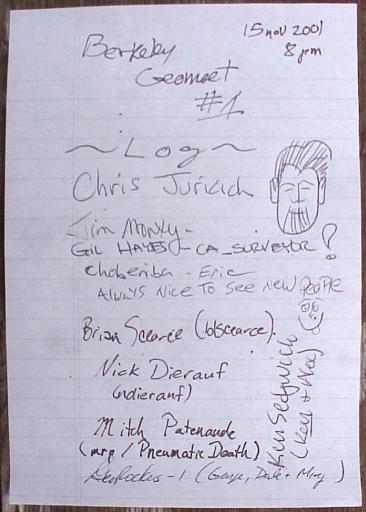 15 nov 2001
8 pm
Berkeley
Geomeet
#1
~ Log ~
Chris Jurich
Jim Monky-
GIL HAYES - CA_SURVEYOR ?
choberiba - Eric
ALWAYS NICE TO SEE NEW PEOPLE
Brian Scearce (bbscearce).
Nick Dierauf
(ndierauf)
Mitch Patenaude
(mrp / Pneumatic Death)
- 1 (George, Dale + Mary)
Ken Sedgwick
(Ken + Alex)